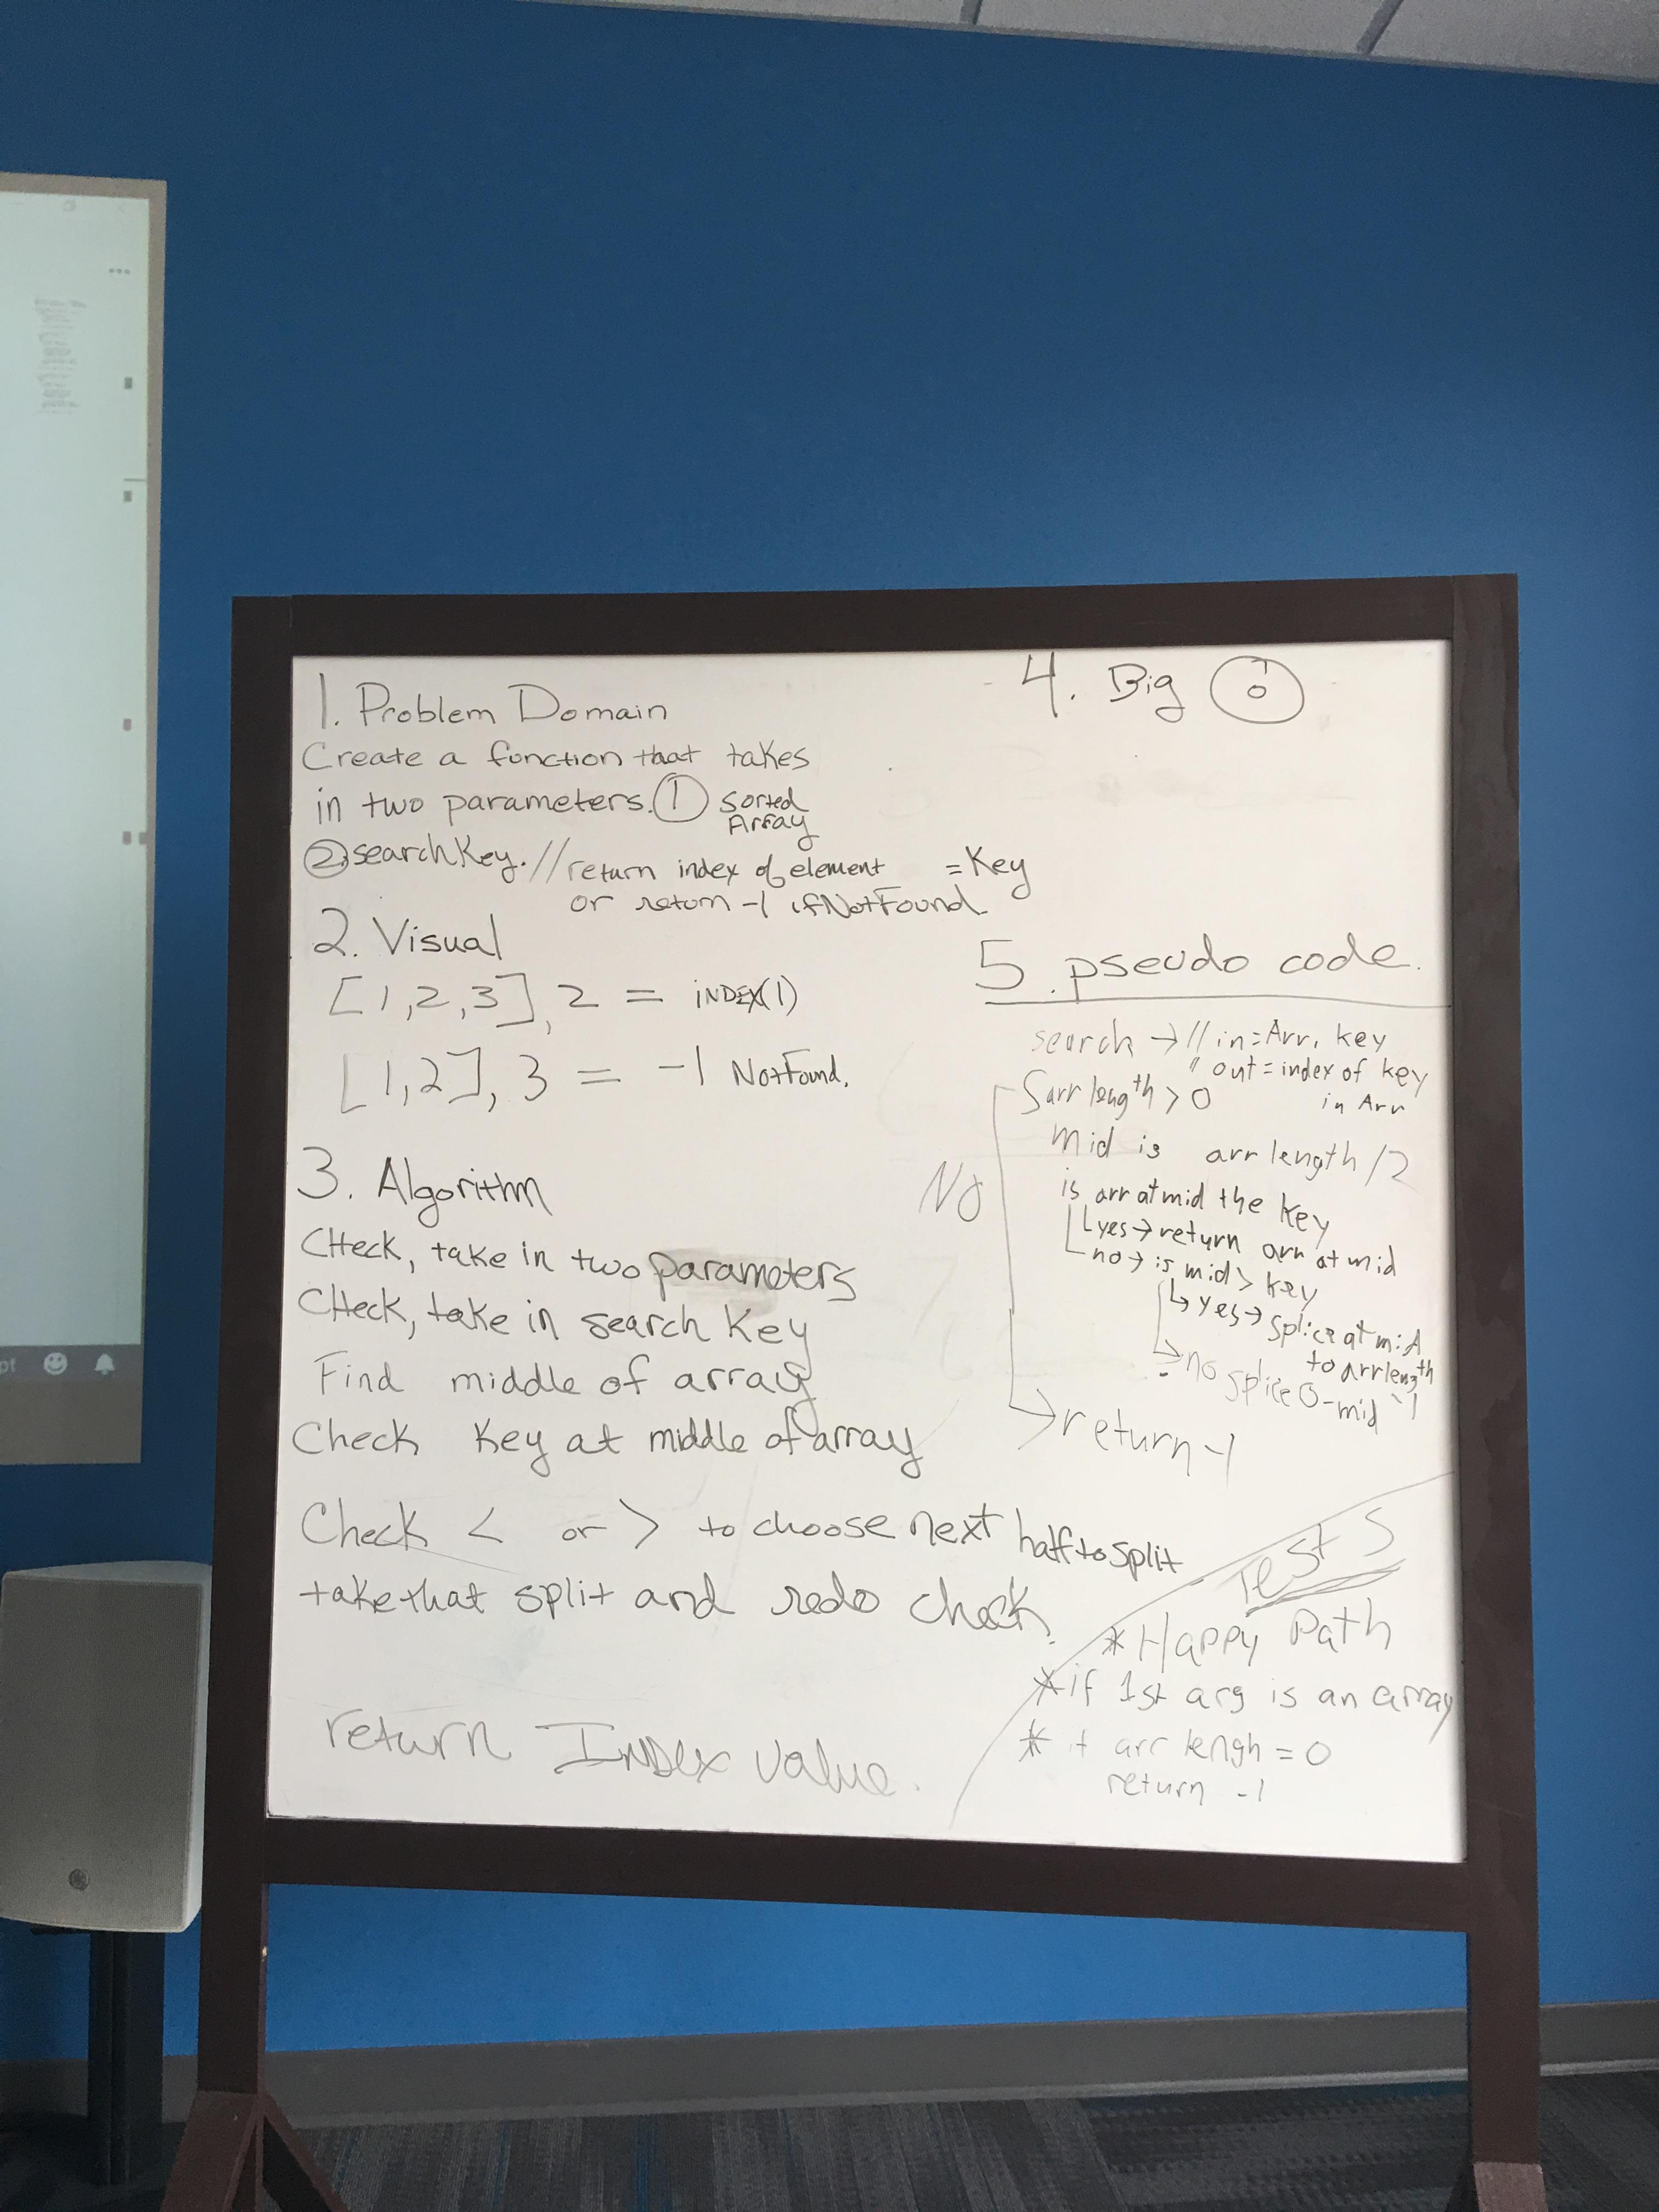 1. Problem Domain
Create a function that takes
in two parameters. ① sorted
Array
② searchKey. // return index of element = Key
or return -1 if Not Found.
2. Visual
[1,2,3], 2 = INDEX(1)
[1,2], 3 = -1 Not Found.
3. Algorithm
CHeck, take in two Parameters
CHeck, take in search Key
Find middle of array
Check Key at middle of array
Check < or > to choose next half to split
take that split and redo check.
return Index Value.
4. Big O
5. pseudo code.
search → // in = Arr, key
" out = index of key
in Arr
arr length > 0
mid is arr length / 2
is arr at mid the key
↳ yes → return arr at mid
no → is mid > key
↳ yes → splice at mid
to arr length
↳ no splice 0 - mid
No
↳ return -1
Tests
* Happy Path
* if 1st arg is an array
* if arr lengh = 0
return -1